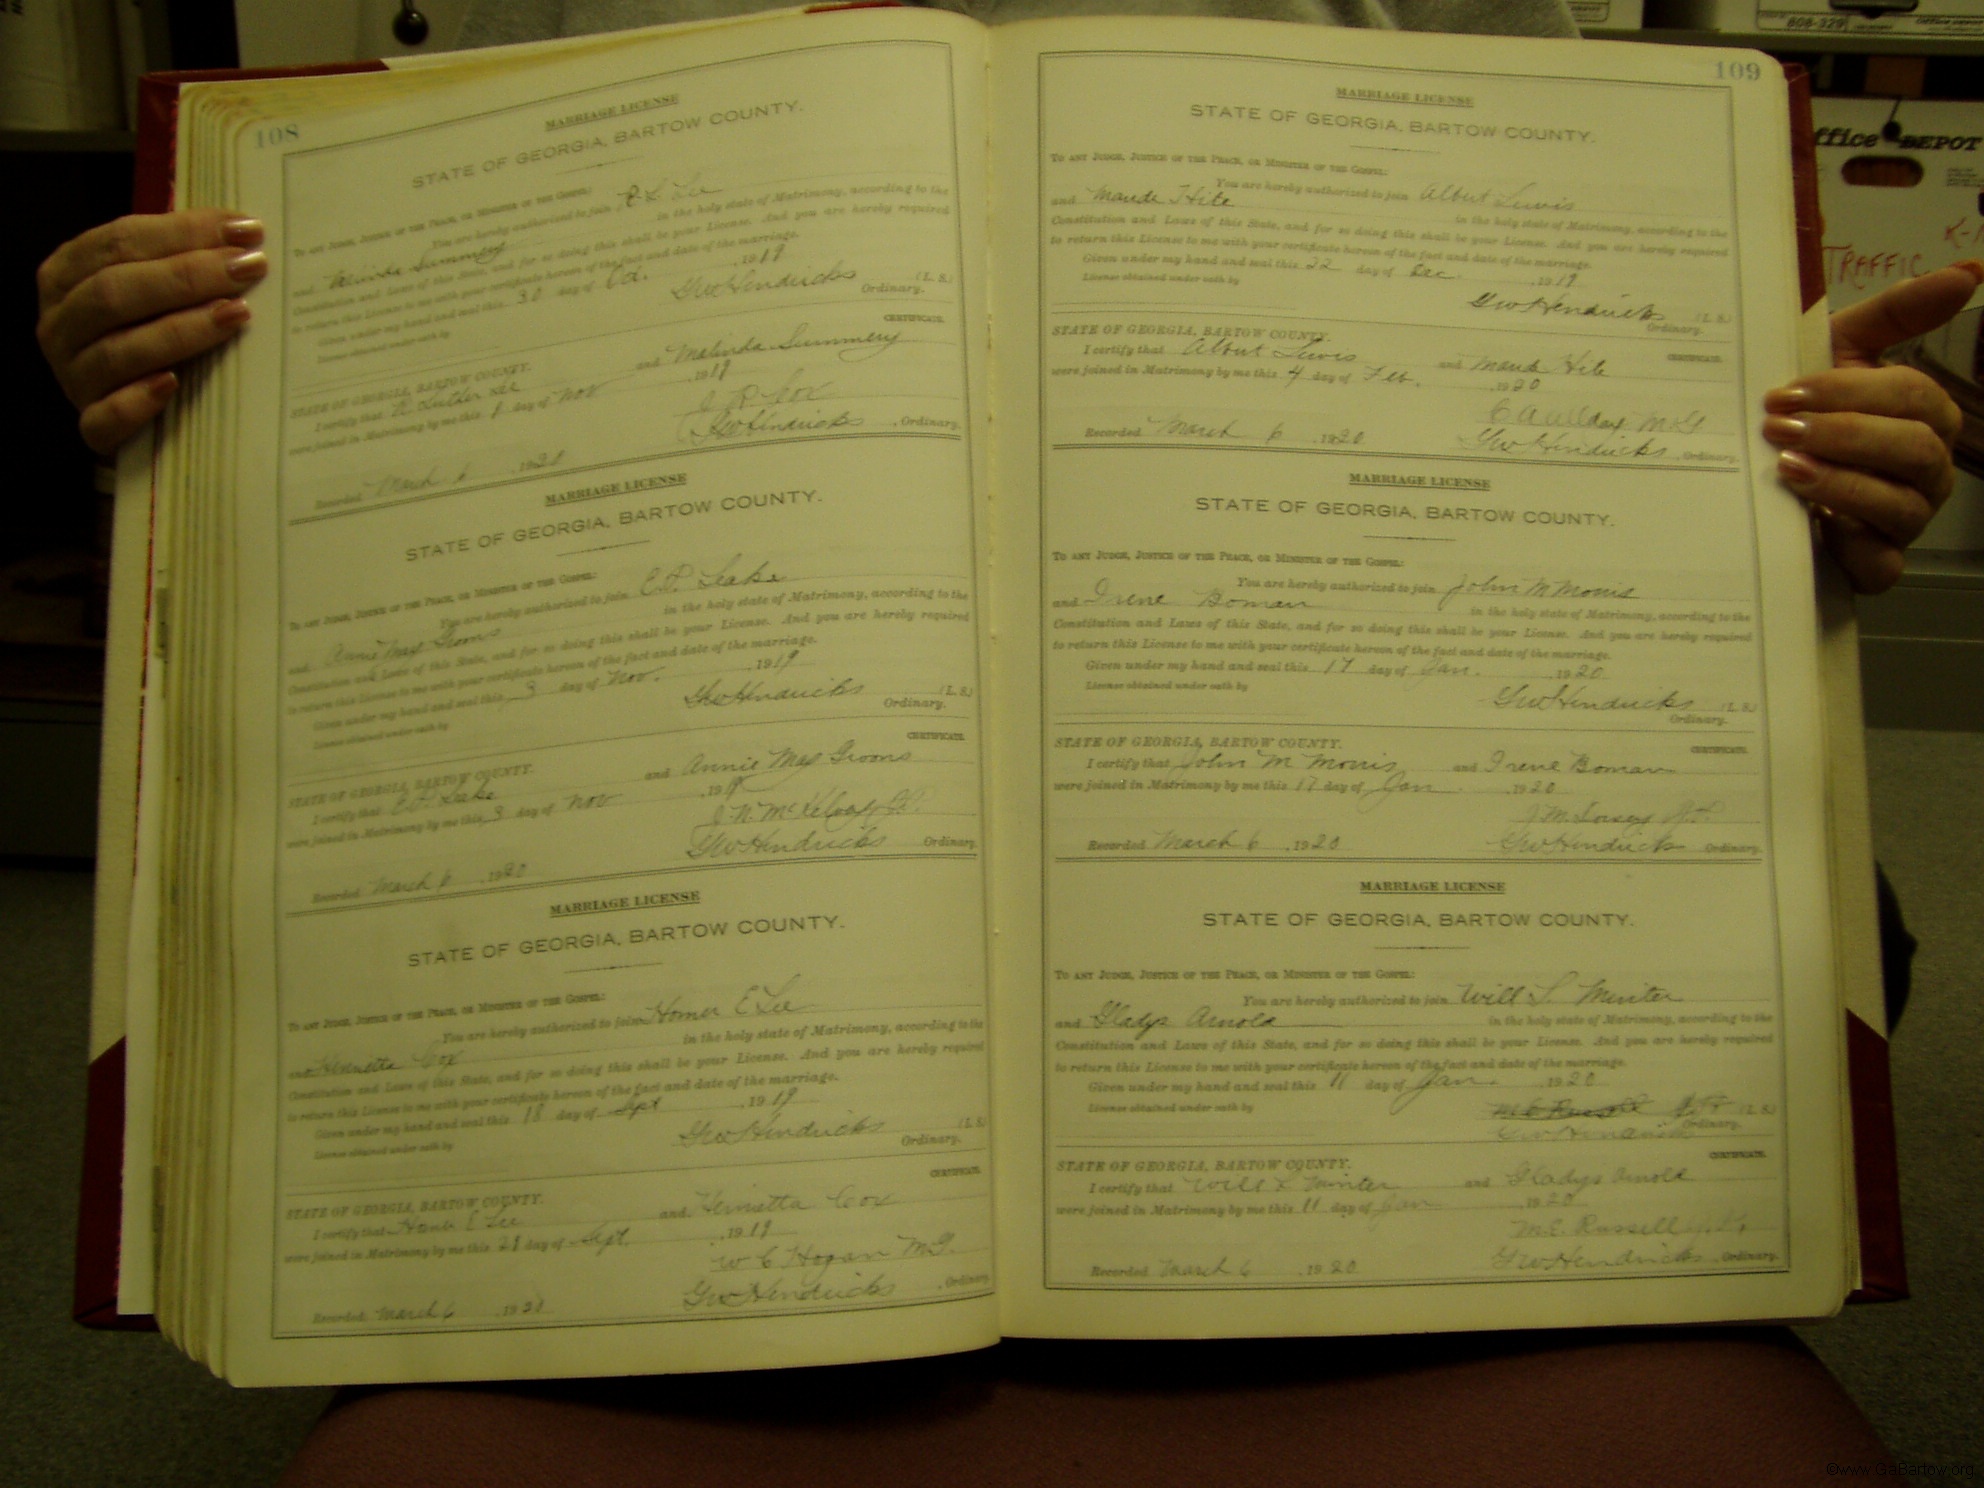 108
MARRIAGE LICENSE
STATE OF GEORGIA, BARTOW COUNTY.
TO ANY JUDGE, JUSTICE OF THE PEACE, OR MINISTER OF THE GOSPEL:
You are hereby authorized to join R L Lee
and Summey in the holy state of Matrimony, according to the
Constitution and Laws of this State, and for so doing this shall be your License. And you are hereby required
to return this License to me with your certificate hereon of the fact and date of the marriage.
Given under my hand and seal this 30 day of Oct. 1919
License obtained under oath by
Geo Hendricks (L. S.)
Ordinary.
CERTIFICATE.
STATE OF GEORGIA, BARTOW COUNTY.
I certify that R Luther Lee and Malinda Summery
were joined in Matrimony by me this 1 day of Nov 1919
J R Cox
Recorded March 6 , 1920 Geo Hendricks , Ordinary.
MARRIAGE LICENSE
STATE OF GEORGIA, BARTOW COUNTY.
TO ANY JUDGE, JUSTICE OF THE PEACE, OR MINISTER OF THE GOSPEL:
You are hereby authorized to join C. P. Leake
and Annie May Grooms in the holy state of Matrimony, according to the
Constitution and Laws of this State, and for so doing this shall be your License. And you are hereby required
to return this License to me with your certificate hereon of the fact and date of the marriage.
Given under my hand and seal this 3 day of Nov. 1919
License obtained under oath by
Geo Hendricks (L. S.)
Ordinary.
CERTIFICATE.
STATE OF GEORGIA, BARTOW COUNTY.
I certify that Leake and Annie May Grooms
were joined in Matrimony by me this 3 day of Nov , 1919
J. N. McKelvey J.P.
Recorded March 6 , 1920 Geo Hendricks Ordinary.
MARRIAGE LICENSE
STATE OF GEORGIA, BARTOW COUNTY.
TO ANY JUDGE, JUSTICE OF THE PEACE, OR MINISTER OF THE GOSPEL:
You are hereby authorized to join Homer E Lee
and Henrietta Cox in the holy state of Matrimony, according to the
Constitution and Laws of this State, and for so doing this shall be your License. And you are hereby required
to return this License to me with your certificate hereon of the fact and date of the marriage.
Given under my hand and seal this 18 day of Sept , 1919
License obtained under oath by
Geo Hendricks (L. S.)
Ordinary.
CERTIFICATE.
STATE OF GEORGIA, BARTOW COUNTY.
I certify that Homer E Lee and Henrietta Cox
were joined in Matrimony by me this 21 day of Sept. , 1919
W C Hogan M.G.
Recorded March 6 , 1920 Geo Hendricks , Ordinary
109
MARRIAGE LICENSE
STATE OF GEORGIA, BARTOW COUNTY.
TO ANY JUDGE, JUSTICE OF THE PEACE, OR MINISTER OF THE GOSPEL:
You are hereby authorized to join Albert Lewis
and Maude Hite in the holy state of Matrimony, according to the
Constitution and Laws of this State, and for so doing this shall be your License. And you are hereby required
to return this License to me with your certificate hereon of the fact and date of the marriage.
Given under my hand and seal this 22 day of Dec. , 1919
License obtained under oath by
Geo Hendricks (L. S.)
Ordinary.
CERTIFICATE.
STATE OF GEORGIA, BARTOW COUNTY.
I certify that Albert Lewis and Maude Hite
were joined in Matrimony by me this 4 day of Feb. , 1920
M G
Recorded March 6 , 1920 Geo Hendricks , Ordinary.
MARRIAGE LICENSE
STATE OF GEORGIA, BARTOW COUNTY.
TO ANY JUDGE, JUSTICE OF THE PEACE, OR MINISTER OF THE GOSPEL:
You are hereby authorized to join John M Morris
and Irene Boman in the holy state of Matrimony, according to the
Constitution and Laws of this State, and for so doing this shall be your License. And you are hereby required
to return this License to me with your certificate hereon of the fact and date of the marriage.
Given under my hand and seal this 17 day of Jan. , 1920
License obtained under oath by
Geo Hendricks (L. S.)
Ordinary.
CERTIFICATE.
STATE OF GEORGIA, BARTOW COUNTY.
I certify that John M Morris and Irene Boman
were joined in Matrimony by me this 17 day of Jan , 1920
J. M. Dorsey J. P.
Recorded March 6 , 1920 Geo Hendricks Ordinary.
MARRIAGE LICENSE
STATE OF GEORGIA, BARTOW COUNTY.
TO ANY JUDGE, JUSTICE OF THE PEACE, OR MINISTER OF THE GOSPEL:
You are hereby authorized to join Will L. Minter
and Gladys Arnold in the holy state of Matrimony, according to the
Constitution and Laws of this State, and for so doing this shall be your License. And you are hereby required
to return this License to me with your certificate hereon of the fact and date of the marriage.
Given under my hand and seal this 11 day of Jan. , 1920
License obtained under oath by M E Russell (L. S.)
Geo Hendricks Ordinary.
CERTIFICATE.
STATE OF GEORGIA, BARTOW COUNTY.
I certify that Will L Minter and Gladys Arnold
were joined in Matrimony by me this 11 day of Jan , 1920
M. E. Russell J. P.
Recorded March 6 , 1920 Geo Hendricks , Ordinary.
608-329
Office DEPOT
TRAFFIC
©www.GaBartow.org